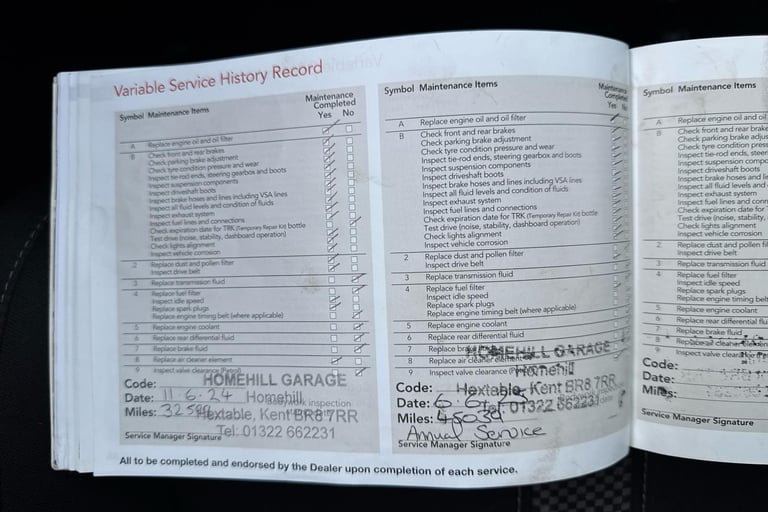 Variable Service History Record
Symbol Maintenance Items
Maintenance
Completed
Yes No
A Replace engine oil and oil filter
B Check front and rear brakes
Check parking brake adjustment
Check tyre condition pressure and wear
Inspect tie-rod ends, steering gearbox and boots
Inspect suspension components
Inspect driveshaft boots
Inspect brake hoses and lines including VSA lines
Inspect all fluid levels and condition of fluids
Inspect exhaust system
Inspect fuel lines and connections
Check expiration date for TRK (Temporary Repair Kit) bottle
Test drive (noise, stability, dashboard operation)
Check lights alignment
Inspect vehicle corrosion
2 Replace dust and pollen filter
Inspect drive belt
3 Replace transmission fluid
4 Replace fuel filter
Inspect idle speed
Replace spark plugs
Replace engine timing belt (where applicable)
5 Replace engine coolant
6 Replace rear differential fluid
7 Replace brake fluid
8 Replace air cleaner element
9 Inspect valve clearance (Petrol)
HOMEHILL GARAGE
Code:
Date: 11.6.24 Homehill
Miles: Hextable, Kent BR8 7RR
Tel: 01322 662231
Service Manager Signature
All to be completed and endorsed by the Dealer upon completion of each service.
Symbol Maintenance Items
Maintenance
Completed
Yes No
A Replace engine oil and oil filter
B Check front and rear brakes
Check parking brake adjustment
Check tyre condition pressure and wear
Inspect tie-rod ends, steering gearbox and boots
Inspect suspension components
Inspect driveshaft boots
Inspect brake hoses and lines including VSA lines
Inspect all fluid levels and condition of fluids
Inspect exhaust system
Inspect fuel lines and connections
Check expiration date for TRK (Temporary Repair Kit) bottle
Test drive (noise, stability, dashboard operation)
Check lights alignment
Inspect vehicle corrosion
2 Replace dust and pollen filter
Inspect drive belt
3 Replace transmission fluid
4 Replace fuel filter
Inspect idle speed
Replace spark plugs
Replace engine timing belt (where applicable)
5 Replace engine coolant
6 Replace rear differential fluid
7 Replace
HOMEHILL GARAGE
8 Replace air cleaner element
9 Inspect valve clearance
Homehill
Code:
Hextable, Kent BR8 7RR
Date:
Tel: 01322 662231
Miles:
Annual Service
Service Manager Signature
Symbol Maintenance Items
A Replace engine oil and oil
B Check front and rear brake
Check parking brake adjus
Check tyre condition press
Inspect tie-rod ends, steer
Inspect suspension compo
Inspect driveshaft boots
Inspect brake hoses and li
Inspect all fluid levels and
Inspect exhaust system
Inspect fuel lines and conn
Check expiration date for
Test drive (noise, stability,
Check lights alignment
Inspect vehicle corrosion
2 Replace dust and pollen fi
Inspect drive belt
3 Replace transmission fluid
4 Replace fuel filter
Inspect idle speed
Replace spark plugs
Replace engine timing belt
5 Replace engine coolant
6 Replace rear differential flu
7 Replace brake fluid
8 Replace air cleaner
Inspect valve clearance
Code:
Date:
Miles:
Service Manager Signature